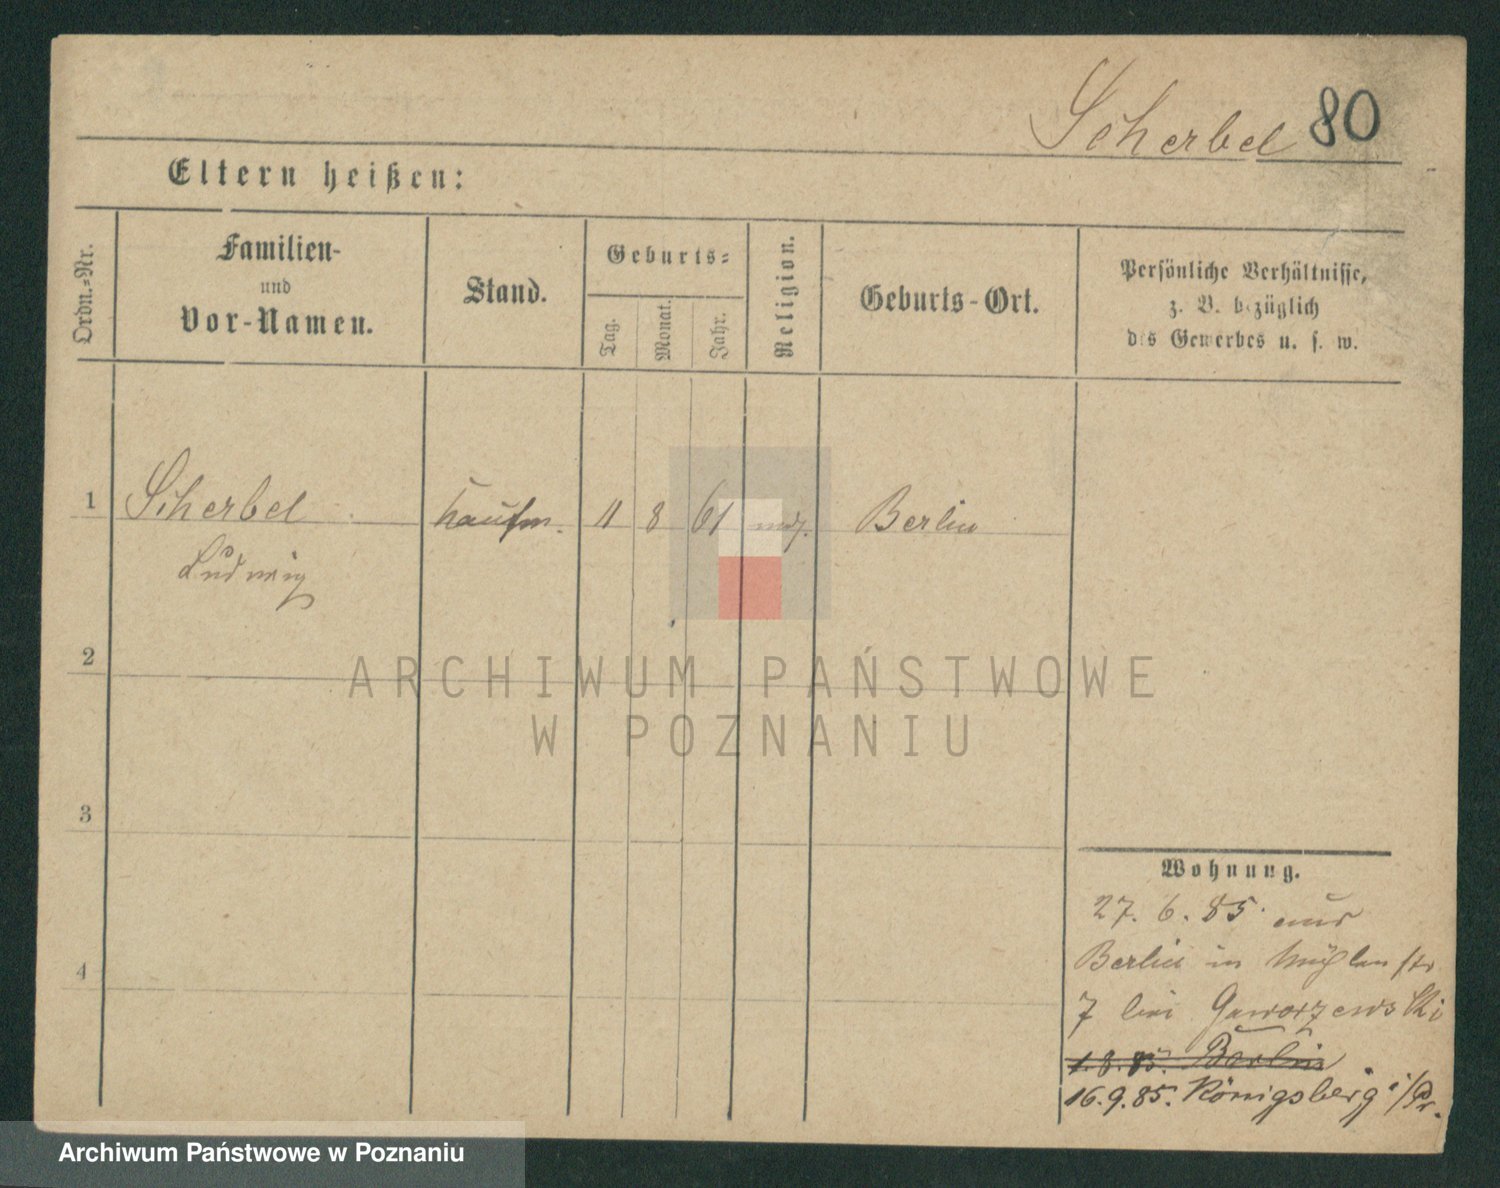 Scherbel 80
Eltern heißen:
Ordn.=Nr.
Familien-
und
Vor-Namen.
Stand.
Geburts=
Tag.
Monat.
Jahr.
Religion.
Geburts-Ort.
Persönliche Verhältnisse,
z. B. bezüglich
des Gewerbes u. s. w.
1 Scherbel Kaufm. 11 8 61 Berlin
Ludwig
2
ARCHIWUM PAŃSTWOWE
W POZNANIU
3
4
Wohnung.
27. 6. 85. aus
Berlin in Mühlenstr
7 bei Gaworzewski
1. 8. 85. Berlin
16. 9. 85. Königsberg i/Pr.
Archiwum Państwowe w Poznaniu